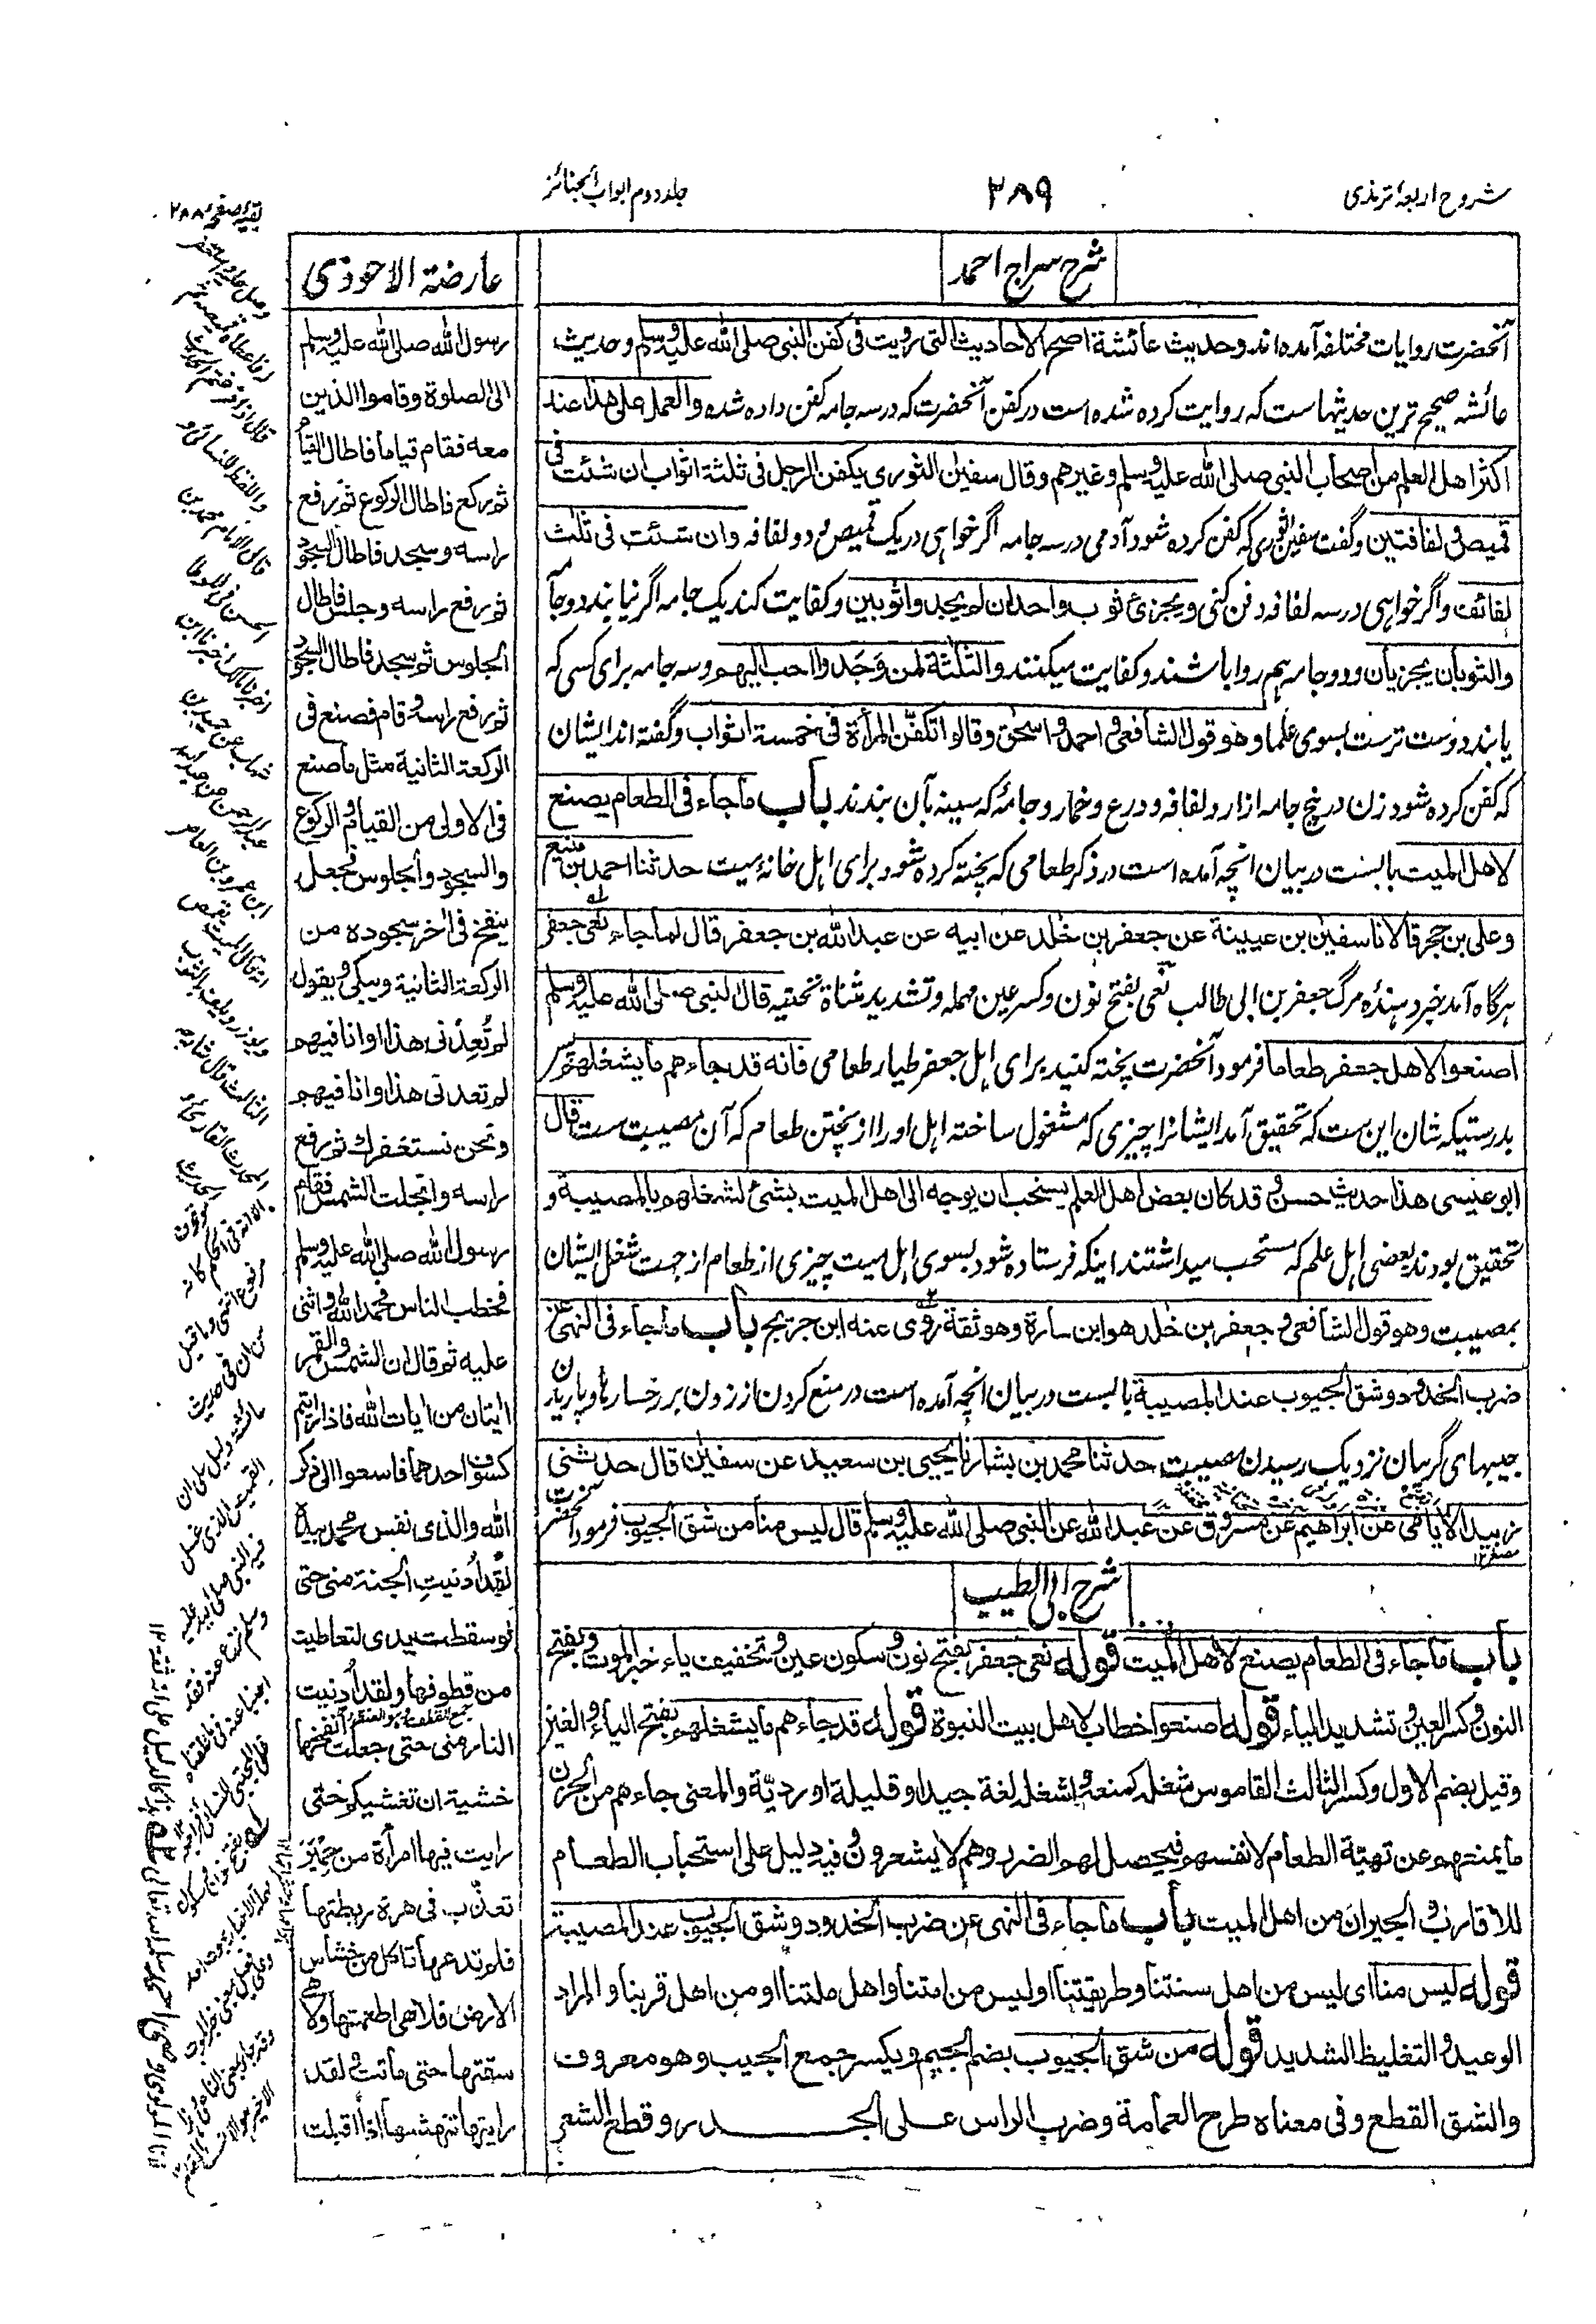 شروح اربعۂ ترمذی
۲۸۹
جلد دوم ابواب الجنائز
شرح سراج احمد
آنحضرت روایات مختلفہ آمدہ اند وحدیث عائشۃ اصح الاحادیث التی رویت فی کفن النبی صلی اللہ علیہ وسلم وحدیث
عائشہ صحیح ترین حدیثہا ست کہ روایت کردہ شدہ است در کفن آنحضرت کہ در سہ جامہ کفن دادہ شدہ والعمل علی ھذا عند
اکثر اھل العلم من اصحاب النبی صلی اللہ علیہ وسلم وغیرھم وقال سفین الثوری یکفن الرجل فی ثلثۃ اثواب ان شئت فی
قمیص ولفافتین وگفت سفین ثوری کہ کفن کردہ شود آدمی در سہ جامہ اگر خواہی در یک قمیص ودو لفافہ وان شئت فی ثلث
لفائف واگر خواہی در سہ لفافہ دفن کنی ویجزئ ثوب واحد ان لم یجدوا ثوبین وکفایت کند یک جامہ اگر نیابند دو جامہ
والثوبان یجزیان ودو جامہ ہم روا باشند وکفایت میکنند والثلثۃ لمن وَجَدوا احب الیھم وسہ جامہ برای کسی کہ
یابند دوست ترست بسوی علما وھو قول الشافعی واحمد واسحق وقالوا تکفّن المرأۃ فی خمسۃ اثواب وگفتہ اند ایشان
کہ کفن کردہ شود زن در پنج جامہ ازار ولفافہ ودرع وخمار وجامۂ کہ سینہ بآن بندند باب ماجاء فی الطعام یصنع
لاھل المیت بابست در بیان انچہ آمدہ است در ذکر طعامی کہ پختہ کردہ شود برای اہل خانۂ میت حدثنا احمد بن منیع
وعلی بن حجر قالا نا سفین بن عیینۃ عن جعفر بن خلد عن ابیہ عن عبد اللہ بن جعفر قال لما جاء نعی جعفر
ہرگاہ آمد خبر دہندۂ مرگ جعفر بن ابی طالب نعی بفتح نون وکسر عین مہملہ وتشدید مثناۃ تحتیہ قال النبی صلی اللہ علیہ وسلم
اصنعوا لاھل جعفر طعاما فرمود آنحضرت پختہ کنید برای اہل جعفر طیار طعامی فانہ قد جاءھم ما یشغلھم پس
بدرستیکہ شان این ست کہ تحقیق آمد ایشانرا چیزی کہ مشغول ساختہ اہل او را از پختن طعام کہ آن مصیبت ست قال
ابو عیسی ھذا حدیث حسن وقد کان بعض اھل العلم یستحب ان یوجہ الی اھل المیت بشئ لشغلھم بالمصیبۃ و
تحقیق بودند بعضی اہل علم کہ مستحب میداشتند اینکہ فرستادہ شود بسوی اہل میت چیزی از طعام از جہت شغل ایشان
بمصیبت وھو قول الشافعی وجعفر بن خلد ھو ابن سارۃ وھو ثقۃ روی عنہ ابن جریج باب ماجاء فی النھی عن
ضرب الخدود وشق الجیوب عند المصیبۃ بابست در بیان انچہ آمدہ است در منع کردن از زدن بر رخسارہا وپاریدن
جیبہای گریبان نزدیک رسیدن مصیبت حدثنا محمد بن بشار نا یحیی بن سعید عن سفین قال حدثنی
زبید الایامی عن ابراھیم عن مسروق عن عبد اللہ عن النبی صلی اللہ علیہ وسلم قال لیس منا من شق الجیوب فرمود آنحضرت
شرح ابی الطیب
باب ماجاء فی الطعام یصنع لاھل المیت قولہ نعی جعفر بفتح نون وسکون عین وتخفیف یاء خبر الموت وبفتح
النون وکسر العین وتشدید الیاء قولہ اصنعوا خطاب لاھل بیت النبوۃ قولہ قد جاءھم ما یشغلھم بفتح الیاء والغین
وقیل بضم الاول وکسر الثالث القاموس شغلہ کمنعہ واشغلہ لغۃ جیدۃ او قلیلۃ او ردیّۃ والمعنی جاءھم من الحزن
ما یمنعھم عن تھیئۃ الطعام لانفسھم فیحصل لھم الضرر وھم لا یشعرون وفیہ دلیل علی استحباب الطعام
للاقارب والجیران من اھل المیت باب ماجاء فی النھی عن ضرب الخدود وشق الجیوب عند المصیبۃ
قولہ لیس منا ای لیس من اھل سنتنا وطریقتنا او لیس من امتنا واھل ملتنا او من اھل قربنا والمراد
الوعید والتغلیظ الشدید قولہ من شق الجیوب بضم الجیم ویکسر جمع الجیب وھو معروف
والشق القطع وفی معناہ طرح العمامۃ وضرب الراس علی الجدر وقطع الشعر
عارضۃ الاحوذی
رسول اللہ صلی اللہ علیہ وسلم
الی الصلوۃ وقاموا الذین
معہ فقام قیاما فاطال القیام
ثم رکع فاطال الرکوع ثم رفع
راسہ وسجد فاطال السجود
ثم رفع راسہ وجلس فاطال
الجلوس ثم سجد فاطال السجود
ثم رفع راسہ وقام فصنع فی
الرکعۃ الثانیۃ مثل ما صنع
فی الاولی من القیام والرکوع
والسجود والجلوس فجعل
ینفخ فی اٰخر سجودہ من
الرکعۃ الثانیۃ ویبکی ویقول
لم تُعِدْنی ھذا وانا فیھم
لم تعدنی ھذا وانا فیھم
ونحن نستغفرک ثم رفع
راسہ وانجلت الشمس فقام
رسول اللہ صلی اللہ علیہ وسلم
فخطب الناس فحمد اللہ واثنی
علیہ ثم قال ان الشمس والقمر
اٰیتان من اٰیات اللہ فاذا رایتم
کسوف احدھما فاسعوا الی ذکر
اللہ والذی نفس محمد بیدہ
لقد اُدنیتِ الجنۃ منی حتی
لو سقطت یدی لتعاطیت
من قطوفھا ولقد اُدنیت
النار منی حتی جعلت انفخھا
خشیۃ ان تغشیکم حتی
رایت فیھا امرأۃ من حِمْیَر
تعذّب فی ھرۃ ربطتھا
فلم تدعھا تاکل من خشاش
الارض فلا ھی اطعمتھا ولا ھی
سقتھا حتی ماتت ولقد
رایتھا تنھشھا اذا اقبلت
بقیہ صفحہ ۲۸۸